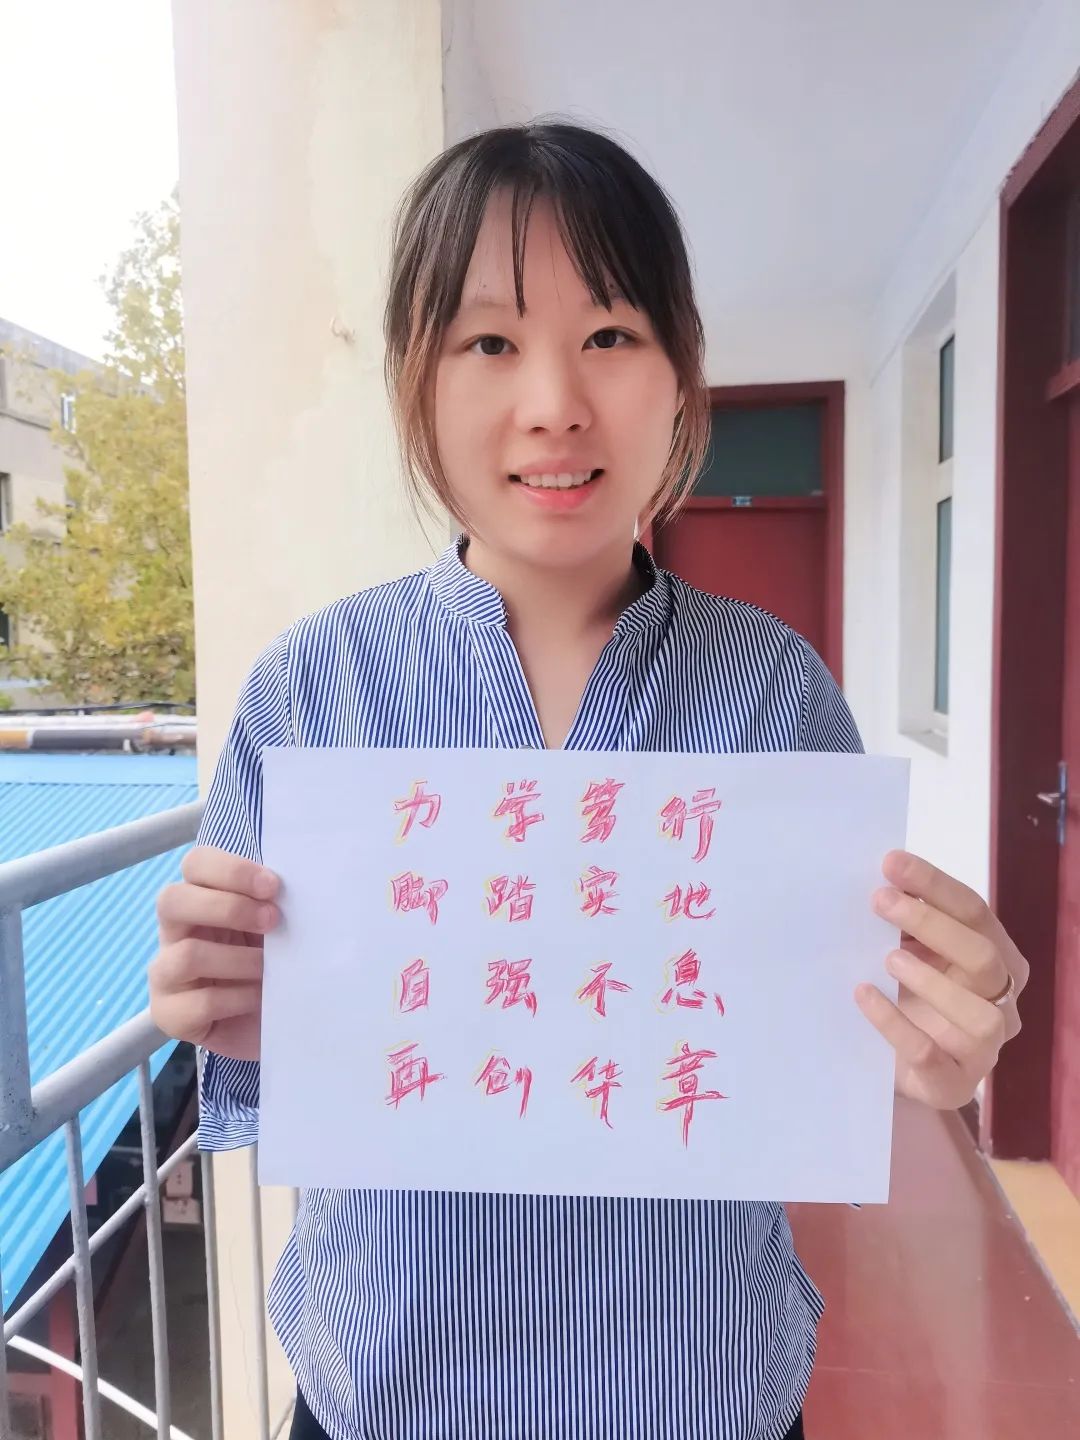 力学笃行
脚踏实地
自强不息
再创华章